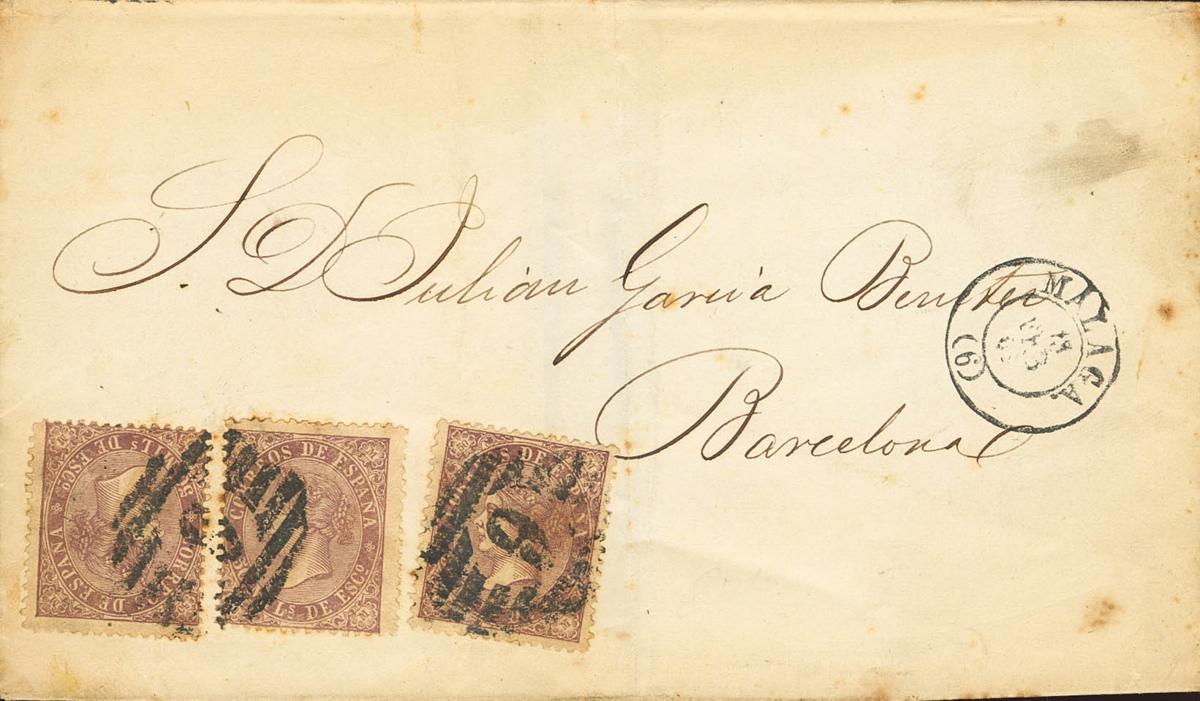 S. D. Julian Garcia Benitez
Barcelona
MAYAGA.
(9)
CORREOS DE ESPAÑA
MIL.s DE ESCo
CORREOS DE ESPAÑA
L.s DE ESCo
9